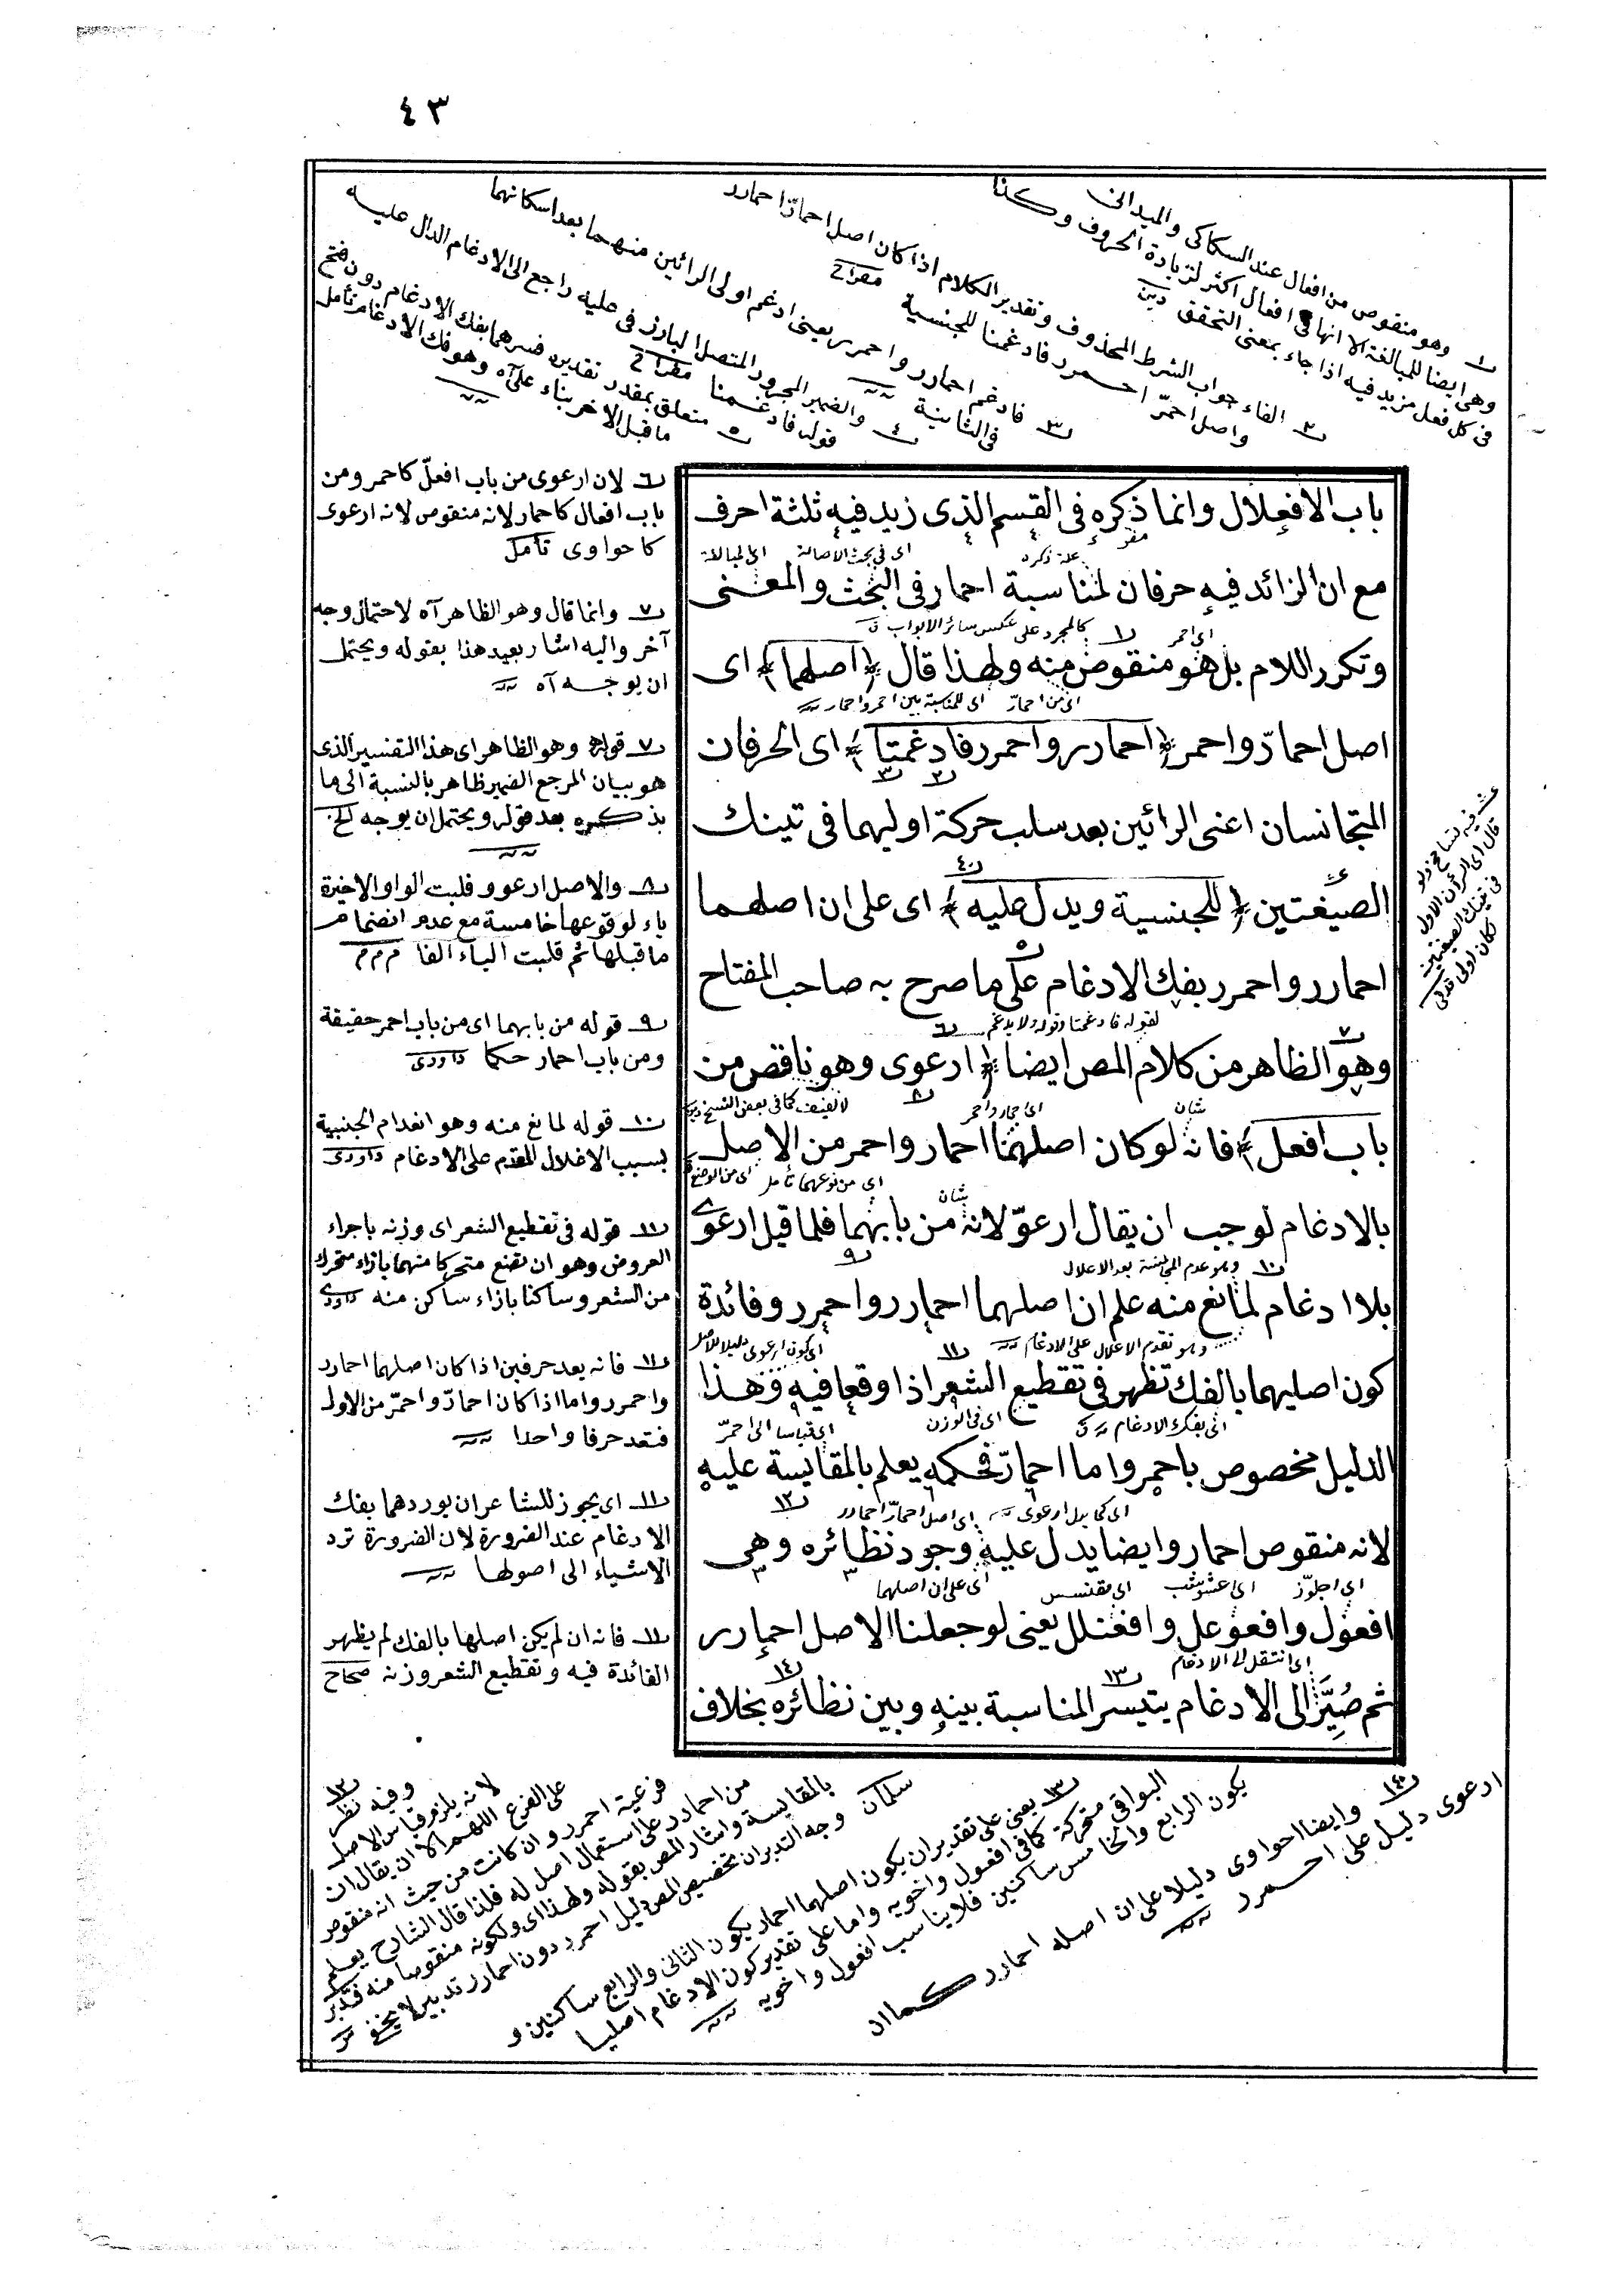 ٤٣
١ وهو منقوص من افعال عند السكاكى والميدانى
وهى ايضا للمبالغة الا انها فى افعال اكثر لزيادة الحروف وكذا
فى كل فعل مزيد فيه اذا جاء بمعنى التحقق
٢ الفاء جواب الشرط المحذوف وتقدير الكلام اذا كان اصل احمارّ احمارر
واصل احمرّ احمرر فادغمنا للجنسية
٣ فادغم احمارر واحمرر يعنى ادغم اولى الرائين منهما بعد اسكانهما
فى الثانية
٤ والضمير المجرور المتصل البارز فى عليه راجع الى الادغام الدال عليه
قوله فادغمنا
٥ متعلق بمقدر تقديره فسرهما بفك الادغام دون فتح
ما قبل الاخر بناء على آه وهو فك الادغام تأمل
باب الافعلال وانما ذكره فى القسم الذى زيد فيه ثلثة احرف
علة ذكره اى فى بحث الاصالة
مع ان الزائد فيه حرفان لمناسبة احمار فى البحث والمعنى
اى احمر ١ كالمجرد على عكس سائر الابواب
وتكرر اللام بل هو منقوص منه ولهذا قال (اصلهما) اى
اى من احمارّ اى للمناسبة بين احمر واحمار
اصل احمارّ واحمر (احمارر واحمرر فادغمتا) اى الحرفان
المتجانسان اعنى الرائين بعد سلب حركة اوليهما فى تينك
الصيغتين (للجنسية ويدل عليه) اى على ان اصلهما
احمارر واحمرر بفك الادغام على ما صرح به صاحب المفتاح
لقوله فادغمتا وقوله ولا يدغم
وهو الظاهر من كلام المص ايضا (ارعوى وهو ناقص من
شان اى احمار واحمر لا لفيف كما فى بعض النسخ
باب افعل) فانه لو كان اصلهما احمار واحمر من الاصل
شان اى من نوعهما تأمل اى من الوضع
بالادغام لوجب ان يقال ارعوّ لانه من بابهما فلما قيل ارعوى
١٠ وهو عدم الجنسية بعد الاعلال
بلا ادغام لمانع منه علم ان اصلهما احمارر واحمرر وفائدة
وهو تقدم الاعلال على الادغام اى كون ارعوى دليلا للاصل
كون اصليهما بالفك تظهر فى تقطيع الشعر اذا وقعا فيه وهذا
اى بفك الادغام اى فى الوزن اى قياسا الى احمرّ
الدليل مخصوص باحمر واما احمارّ فحكمه يعلم بالمقايسة عليه
اى كما يدل ارعوى اى اصل احمارّ احمارر ١٢
لانه منقوص احمار وايضا يدل عليه وجود نظائره وهى
اى اجلوّز اى عشوشب اى مقنسس اى على ان اصلهما
افعوّل وافعوعل وافعنلل يعنى لو جعلنا الاصل احمارر
اى انتقل الى الادغام
ثم صُيِّرَ الى الادغام يتيسر المناسبة بينه وبين نظائره بخلاف
٦ لان ارعوى من باب افعلّ كاحمر ومن
باب افعال كاحمار لانه منقوص لانه ارعوى
كاحواوى تأمل
٧ وانما قال وهو الظاهر آه لاحتمال وجه
آخر واليه اشار بعيد هذا بقوله ويحتمل
ان يوجه آه
٧ قوله وهو الظاهر اى هذا التفسير الذى
هو بيان المرجع الضمير ظاهر بالنسبة الى ما
يذكره بعد قوله ويحتمل ان يوجه الخ
٨ والاصل ارعوو قلبت الواو الاخيرة
ياء لوقوعها خامسة مع عدم انضمام
ما قبلها ثم قلبت الياء الفا م م م
٩ قوله من بابهما اى من باب احمر حقيقة
ومن باب احمار حكما داودى
١٠ قوله لمانع منه وهو انعدام الجنسية
بسبب الاعلال المقدم على الادغام داودى
١١ قوله فى تقطيع الشعر اى وزنه باجراء
العروض وهو ان تضع متحركا منهما بازاء متحرك
من الشعر وساكنا بازاء ساكن منه داودى
١١ فانه يعد حرفين اذا كان اصلهما احمارر
واحمرر واما اذا كان احمارّ واحمرّ من الاول
فتعد حرفا واحدا
١١ اى يجوز للشاعر ان يوردهما بفك
الادغام عند الضرورة لان الضرورة ترد
الاشياء الى اصولها
١١ فانه ان لم يكن اصلها بالفك لم يظهر
الفائدة فيه وتقطيع الشعر وزنه صحاح
قال اى الرأن الاول
فى تينك الصيغتين
لكان اولى
١٢ وفيه نظر
لانه يلزم قياس الاصل
على الفرع اللهم الا ان يقال ان
فرعية احمرر وان كانت من حيث انه منقوص
من احمارر على استعمال اصل له فلذا قال الشارح يعلم
بالمقايسة واشار المص بقوله ولهذا اى ولكونه منقوصا منه فتدبر
سلمان وجه التدبر ان تخصيص المص دليل احمرر دون احمارر تدبير لا يخفى
١٣ يعنى على تقدير ان يكون اصلهما احمارر يكون الثانى والرابع ساكنين و
البواقى متحركة كما فى افعول واخويه واما على تقدير كون الادغام اصليا
يكون الرابع والخامس ساكنين فلا يناسب افعول واخويه
١٤ وايضا احواوى دليلا على ان اصله احمارر كما ان
ارعوى دليل على احمرر